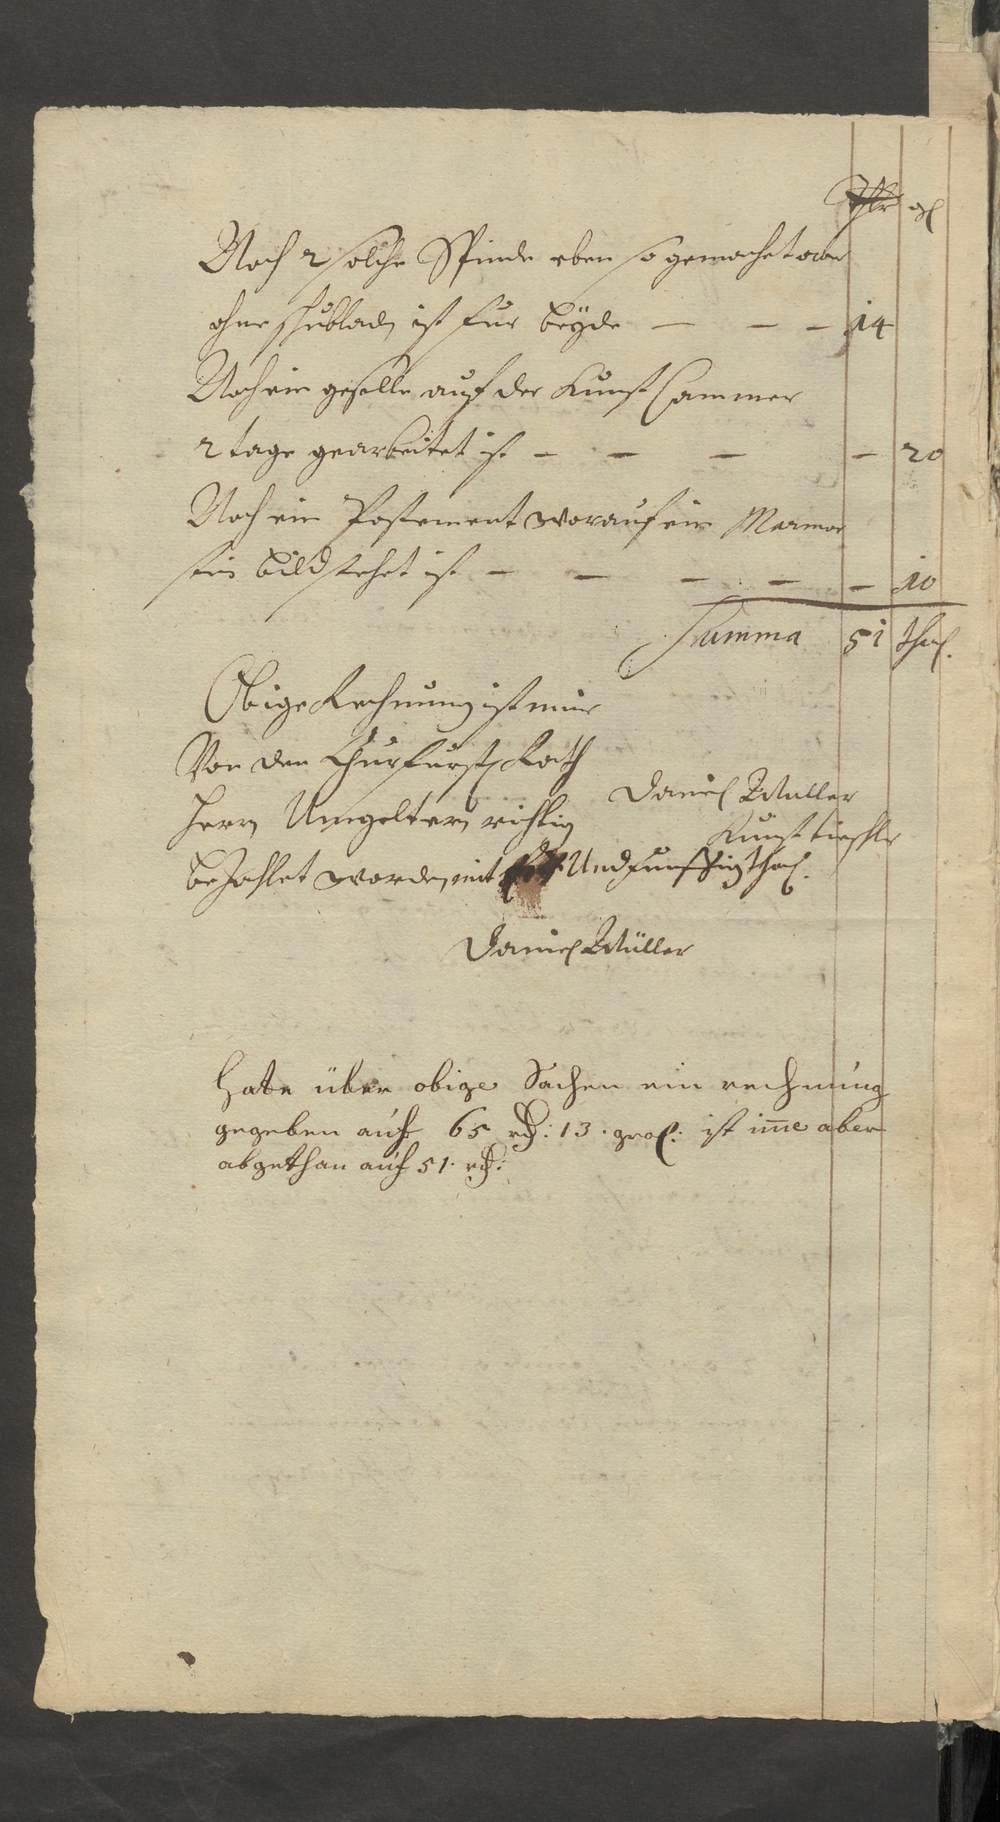 Thlr gl
Noch 2 solche Spinde eben so gemachet aber
ohne schubladn ist fur beÿde — — — 14
Noch ein geselle auf der Kunst Cammer
2 tage gearbeitet ist — — — — 20
Noch ein Postement worauf ein Marmor
stein bild stehet ist — — — — — 10
Summa 51 thal.
Obige Rechnung ist mir
Von den Churfurstl Rath
Herrn Ungeltern richtig
beZahlet worden mit Und funftzig thal.
Daniel Müller
Kunst tischler
Daniel Müller
Hate über obige Sachen ein rechnung
gegeben auf 65 rth: 13. grosch: ist ime aber
abgethan auf 51. rth: